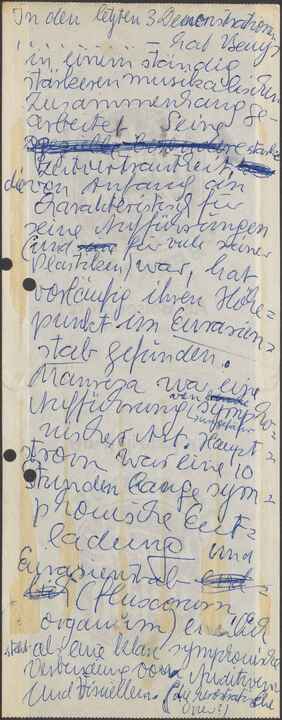 In den letzten 3 Demonstrationen
. . . . . . . – hat Beuys
in einem ständig
stärkeren musikalischen
Zusammenhang ge-
arbeitet. Seine
starke
Zeitvertrautheit,
die von Anfang an
Charakteristisch für
seine Aufführungen
(und für viele seiner
Plastiken) war, hat
vorläufig ihren Höhe=
punkt im Eurasien=
stab gefunden.
Manresa war eine
Aufführung von sympho=
nischer Art. Haupt=
strom war eine 10
Stunden lange sym=
phonische Ent=
ladung und
Eurasienstab
(fluxorum
organum)
statt als eine klare symphonische
Verbindung von Auditivem
und Visuellem.